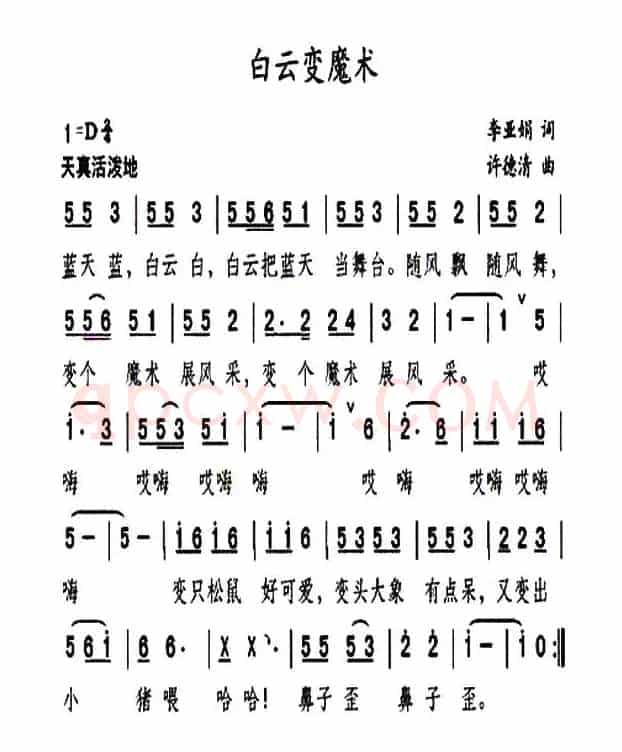 白云变魔术
1=D 2/4 李亚娟 词
天真活泼地 许德清 曲
5 5 3 | 5 5 3 | 5 5 6 5 1 | 5 5 3 | 5 5 2 | 5 5 2 |
蓝天 蓝，白云 白，白云把蓝天 当舞台。随风 飘 随风 舞，
5 5 6 5 1 | 5 5 2 | 2· 2 2 4 | 3 2 | 1 - | 1 ∨ 5 |
变个 魔术 展风 采，变 个 魔术 展 风 采。 哎
i· 3 | 5 5 3 5 i | i - | i ∨ 6 | 2̇· 6 | i i i 6 |
嗨 哎嗨 哎嗨 嗨 哎 嗨 哎嗨 哎嗨
5 - | 5 - | i 6 i 6 | i i 6 | 5 3 5 3 | 5 5 3 | 2 2 3 2 |
嗨 变只松鼠 好可爱，变头大象 有点呆，又变出
5 6 i | 6 6· | X X | 5 5 5 3 | 2̇ 2̇ | i - | i 0 :‖
小 猪喂 哈哈！ 鼻子歪 鼻子歪。
qpcxw.COM